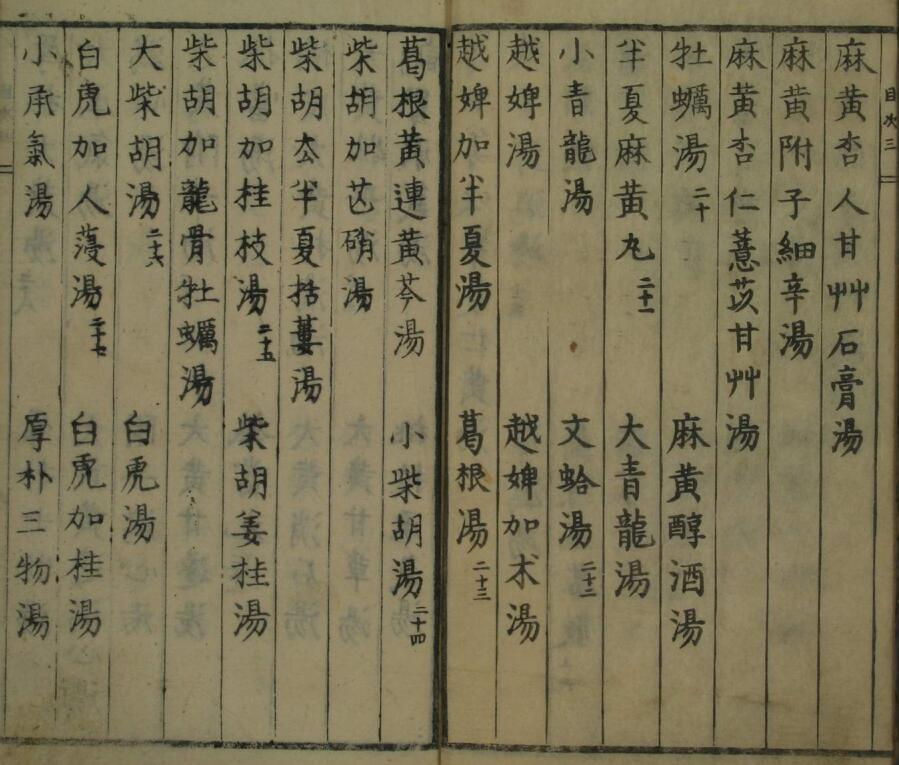 目次 三
麻黄杏人甘艸石膏湯
麻黄附子細辛湯
麻黄杏仁薏苡甘艸湯
牡蠣湯二十 麻黄醇酒湯
半夏麻黄丸二十一 大青龍湯
小青龍湯 文蛤湯二十二
越婢湯 越婢加朮湯
越婢加半夏湯 葛根湯二十三
葛根黄連黄芩湯 小柴胡湯二十四
柴胡加芒硝湯
柴胡去半夏括蔞湯
柴胡加桂枝湯二十五 柴胡姜桂湯
柴胡加龍骨牡蠣湯
大柴胡湯二十六 白虎湯
白虎加人薓湯二十七 白虎加桂湯
小承氣湯 厚朴三物湯